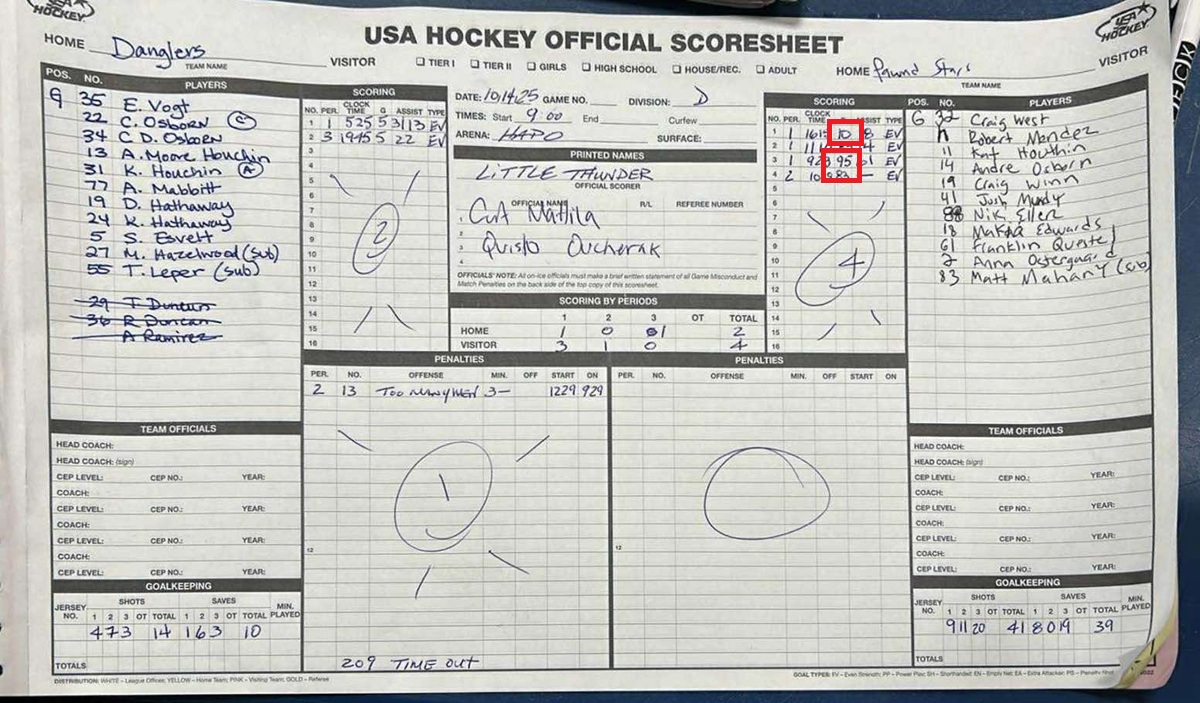 USA HOCKEY
USA HOCKEY OFFICIAL SCORESHEET
USA HOCKEY
HOME Danglers VISITOR
TEAM NAME
☐ TIER I ☐ TIER II ☐ GIRLS ☐ HIGH SCHOOL ☐ HOUSE/REC. ☐ ADULT
HOME Pawnd Stars VISITOR
TEAM NAME
POS. NO. PLAYERS
G 35 E. Vogt
22 C. OSBORN (C)
34 C D. OSBORN
13 A. Moore Houchin
31 K. Houchin (A)
77 A. Mabbitt
19 D. Hathaway
24 K. Hathaway
5 S. Esvelt
27 M. Hazelwood (sub)
55 T. Leper (sub)
29 T Duncan
36 R Duncan
A Ramirez
SCORING
NO. PER. CLOCK TIME G ASSIST TYPE
1 1 525 5 31 13 EV
2 3 1945 5 22 EV
3
4
5
6
7
8
9
10
11
12
13
14
15
16
2
DATE: 10/14/25 GAME NO. DIVISION: D
TIMES: Start 9:00 End Curfew
ARENA: HAPO SURFACE:
PRINTED NAMES
LITTLE THUNDER
OFFICIAL SCORER
OFFICIAL NAME R/L REFEREE NUMBER
1
2
3
4
OFFICIALS' NOTE: All on-ice officials must make a brief written statement of all Game Misconduct and
Match Penalties on the back side of the top copy of this scoresheet.
SCORING BY PERIODS
1 2 3 OT TOTAL
HOME 1 0 1 2
VISITOR 3 1 0 4
SCORING
NO. PER. CLOCK TIME ASSIST TYPE
1 1 1615 10 8 EV
2 1 4 EV
3 1 95 EV
4 2 — EV
5
6
7
8
9
10
11
12
13
14
15
16
4
POS. NO. PLAYERS
G 32 Craig West
Robert Mendez
11 Houthin
14 Andre Osborn
19 Craig Winn
41 Josh Mundy
88 Niki Eller
18 Edwards
61 Franklin
2 Anna Ostergaard
83 Matt Mahany (sub)
PENALTIES
PER. NO. OFFENSE MIN. OFF START ON
2 13 TOO MANY MEN 3— 1229 929
12
1
209 TIME OUT
PENALTIES
PER. NO. OFFENSE MIN. OFF START ON
12
TEAM OFFICIALS
HEAD COACH:
HEAD COACH: (sign)
CEP LEVEL: CEP NO.: YEAR:
COACH:
CEP LEVEL: CEP NO.: YEAR:
COACH:
CEP LEVEL: CEP NO.: YEAR:
COACH:
CEP LEVEL: CEP NO.: YEAR:
GOALKEEPING
JERSEY NO. SHOTS SAVES MIN. PLAYED
1 2 3 OT TOTAL 1 2 3 OT TOTAL
4 7 3 14 1 6 3 10
TOTALS
TEAM OFFICIALS
HEAD COACH:
HEAD COACH: (sign)
CEP LEVEL: CEP NO.: YEAR:
COACH:
CEP LEVEL: CEP NO.: YEAR:
COACH:
CEP LEVEL: CEP NO.: YEAR:
COACH:
CEP LEVEL: CEP NO.: YEAR:
GOALKEEPING
JERSEY NO. SHOTS SAVES MIN. PLAYED
1 2 3 OT TOTAL 1 2 3 OT TOTAL
9 11 20 41 8 0 19 39
TOTALS
DISTRIBUTION: WHITE – League Offices; YELLOW – Home Team; PINK – Visiting Team; GOLD – Referee
GOAL TYPES: EV – Even Strength; PP – Power Play; SH – Shorthanded; EN – Empty Net; EA – Extra Attacker; PS – Penalty Shot